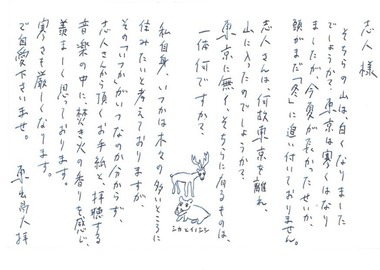 志人 様
そちらの山は、白くなりました
でしょうか?、東京は寒くはなり
ましたが、今夏が長かったせいか、
頭がまだ「冬」に追い付いておりません。
志人さんは、何故東京を離れ、
山に入ったのでしょうか?、
東京に無く、そちらに有るものは、
一体何ですか?、
私自身、いつかは木々の多いところに
住みたいと考えておりますが、
その"いつか"がいつなのか分からず、
志人さんから頂くお手紙と、拝聴する
音楽の中に、焚き火の香りを感じ、
羨ましく思っております。
寒さも厳しくなります。
ご自愛下さいませ。
拝
シカとイノシシ